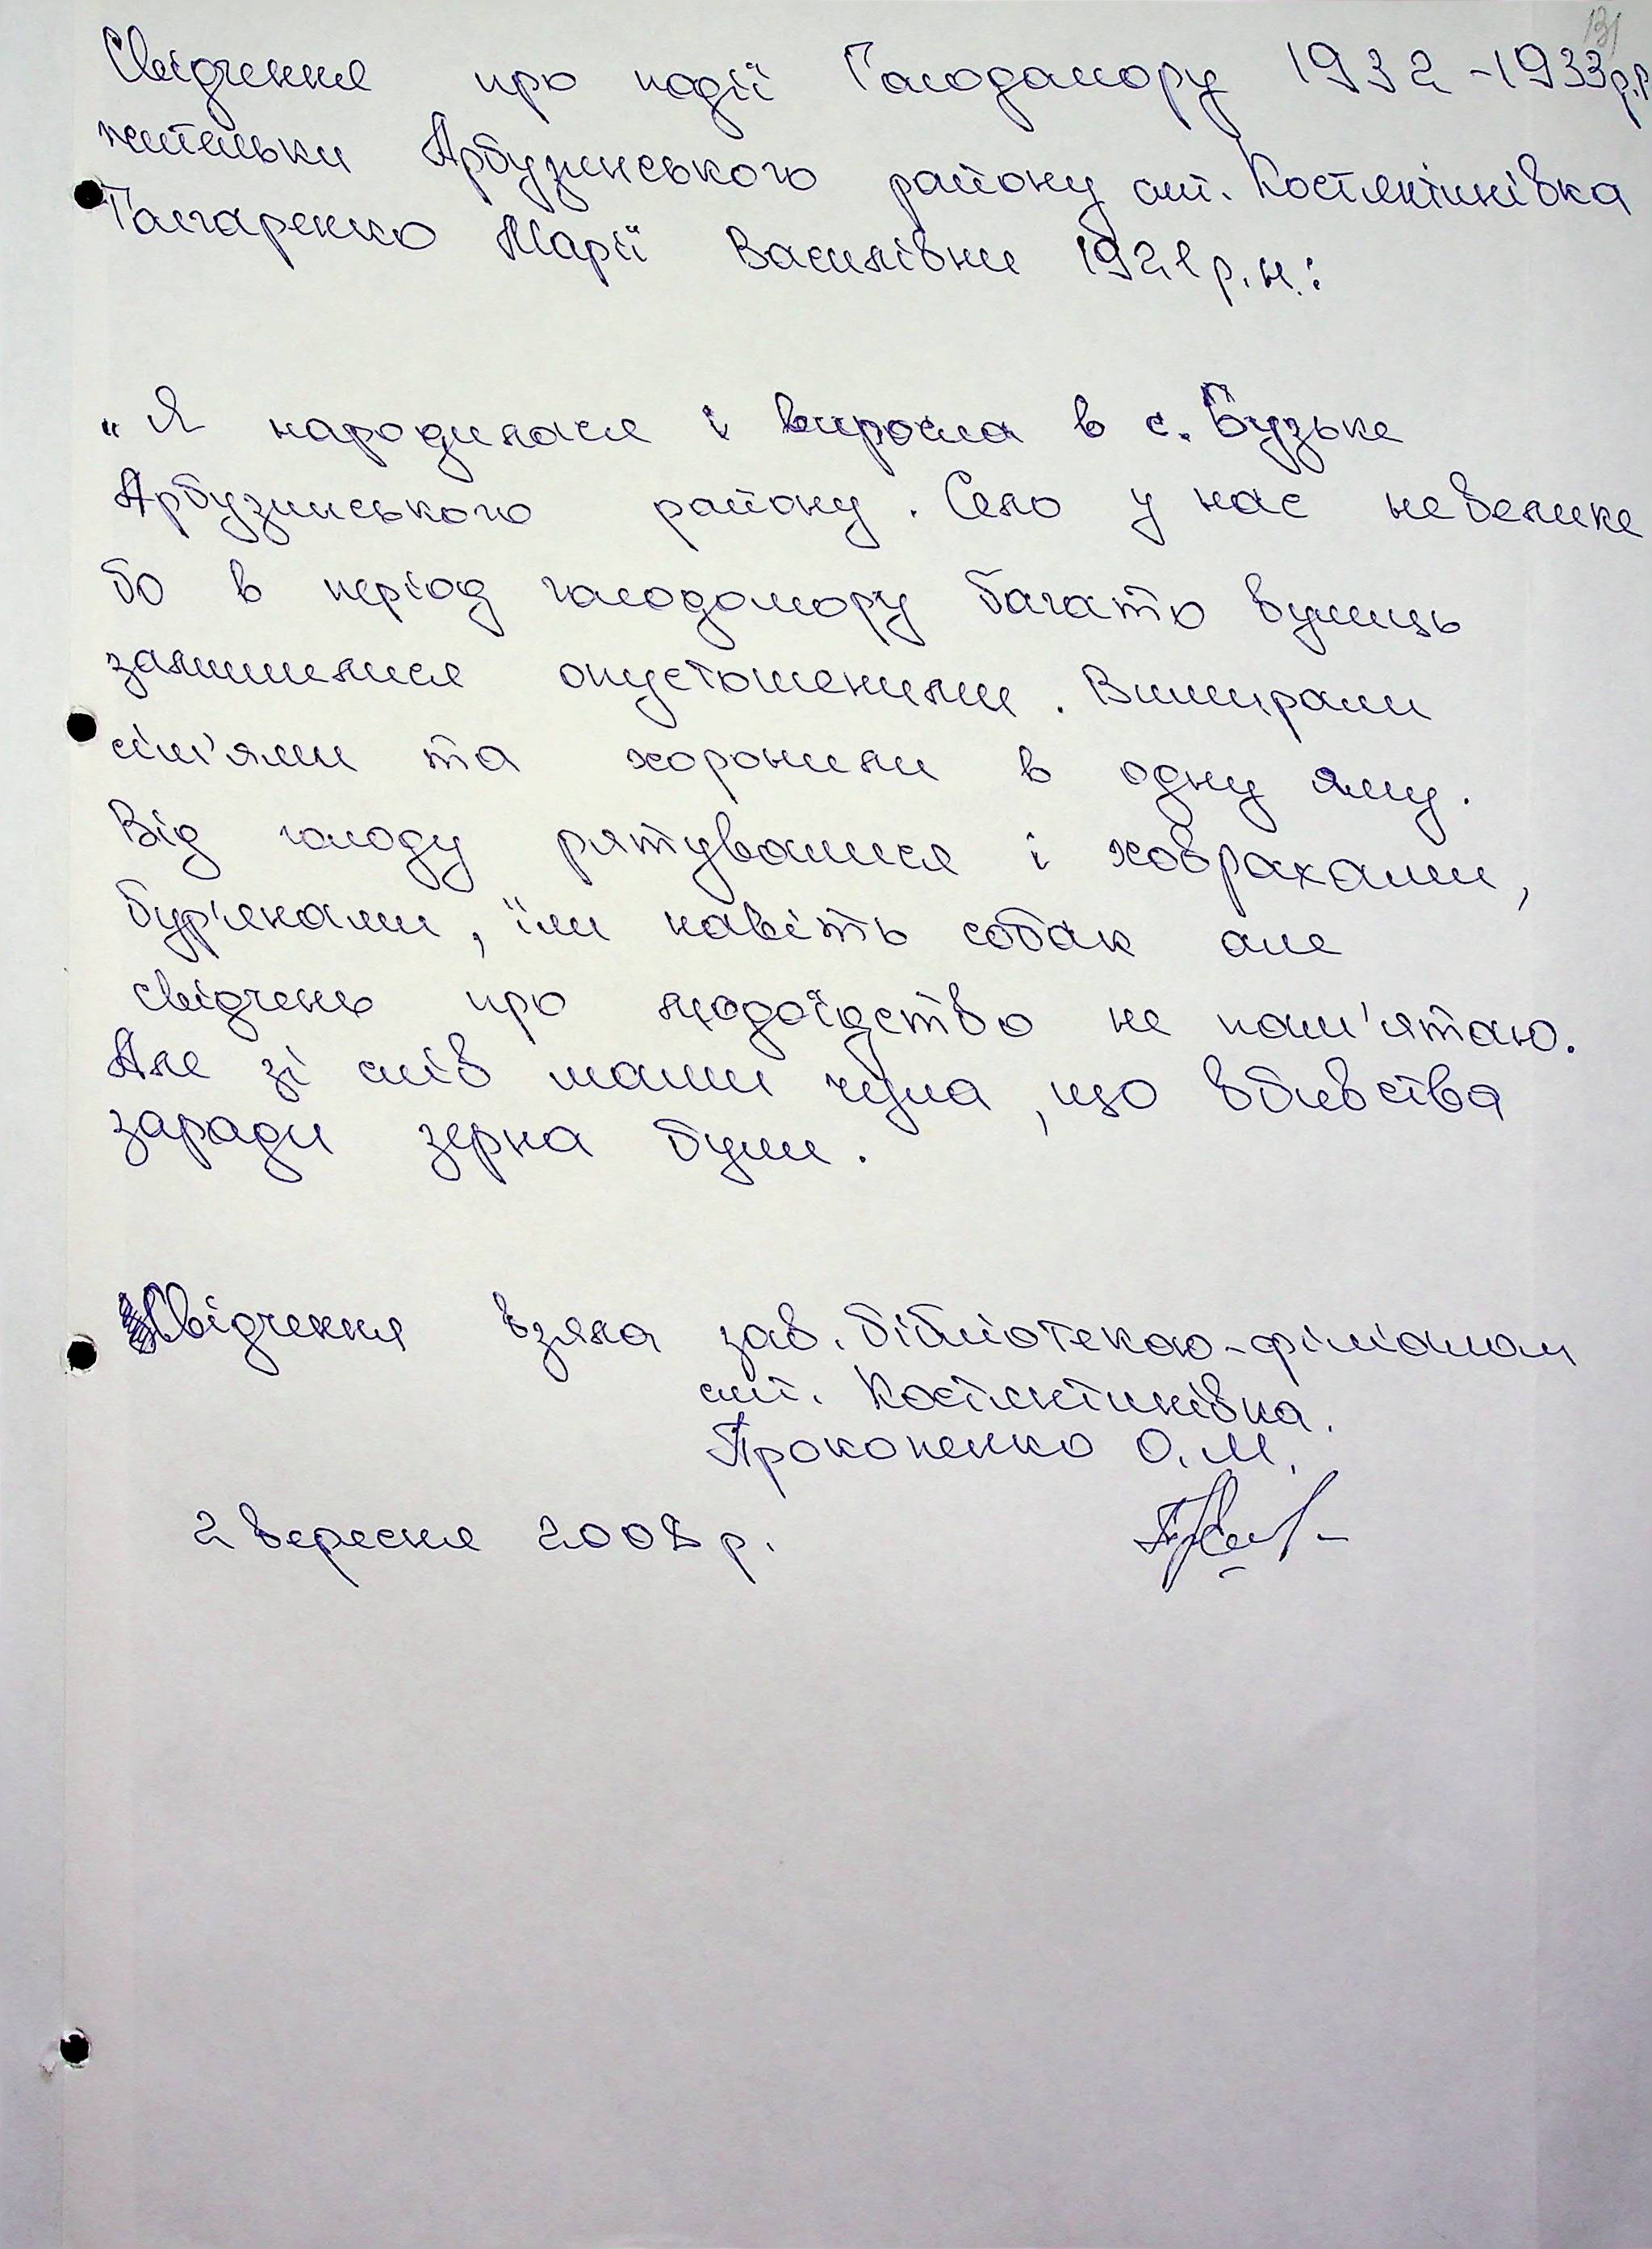 131
Свідчення про події Голодомору 1932-1933 р.р
жительки Арбузинського району смт. Костянтинівка
Гончаренко Марії Василівни 1921 р.н.:
"Я народилася і виросла в с. Бузьке
Арбузинського району. Село у нас невелике
бо в період голодомору багато вулиць
залишилися опустошеними. Вимирали
сім'ями та хоронили в одну яму.
Від голоду рятувалися і ховрахами,
бур'янами, їли навіть собак але
свідчень про людоїдство не пам'ятаю.
Але зі слів мами чула, що вбивства
заради зерна були.
Свідчення взяла зав. бібліотекою-філіалом
смт. Костянтинівка.
Прокопенко О.М.
2 вересня 2008 р.